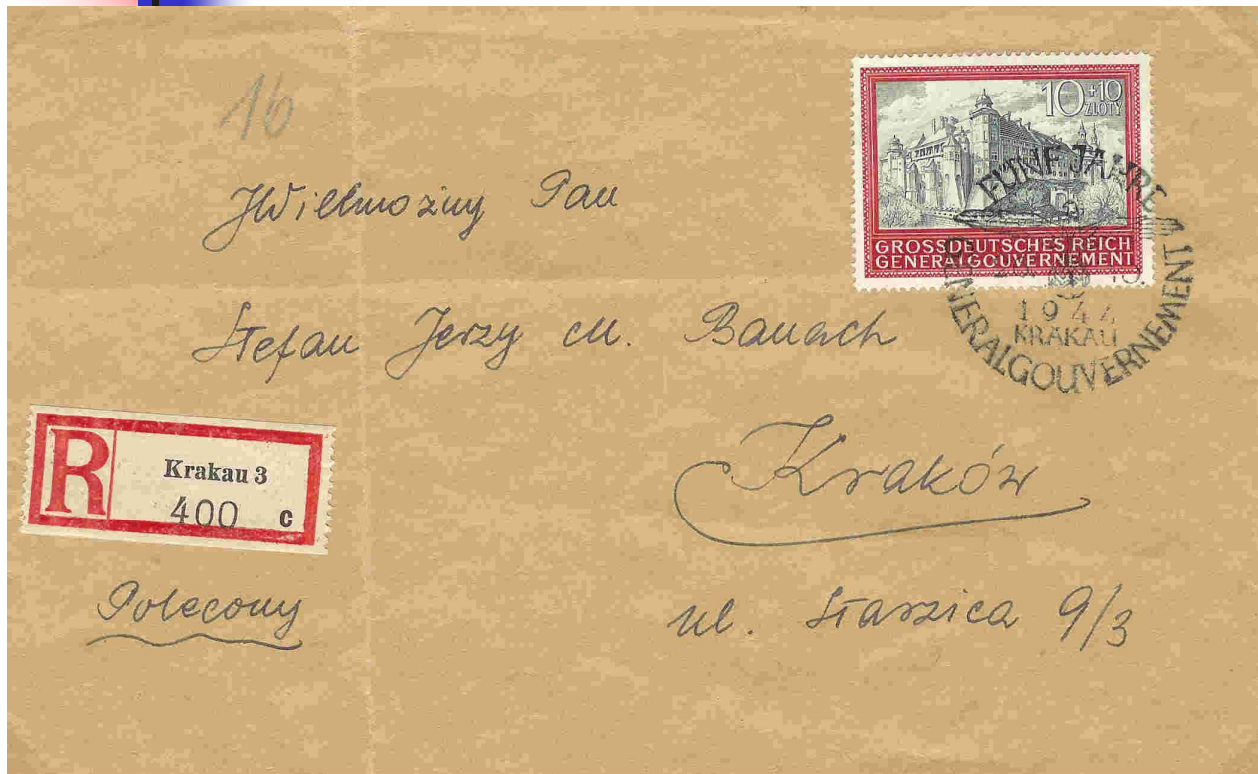 16
10+10
ZŁOTY
GROSSDEUTSCHES REICH
GENERALGOUVERNEMENT
FÜNF JAHRE
GENERALGOUVERNEMENT
1944
KRAKAU
JWielmożny Pan
Stefan Jerzy m. Banach
R
Krakau 3
400 c
Kraków
Polecony
ul. Staszica 9/3